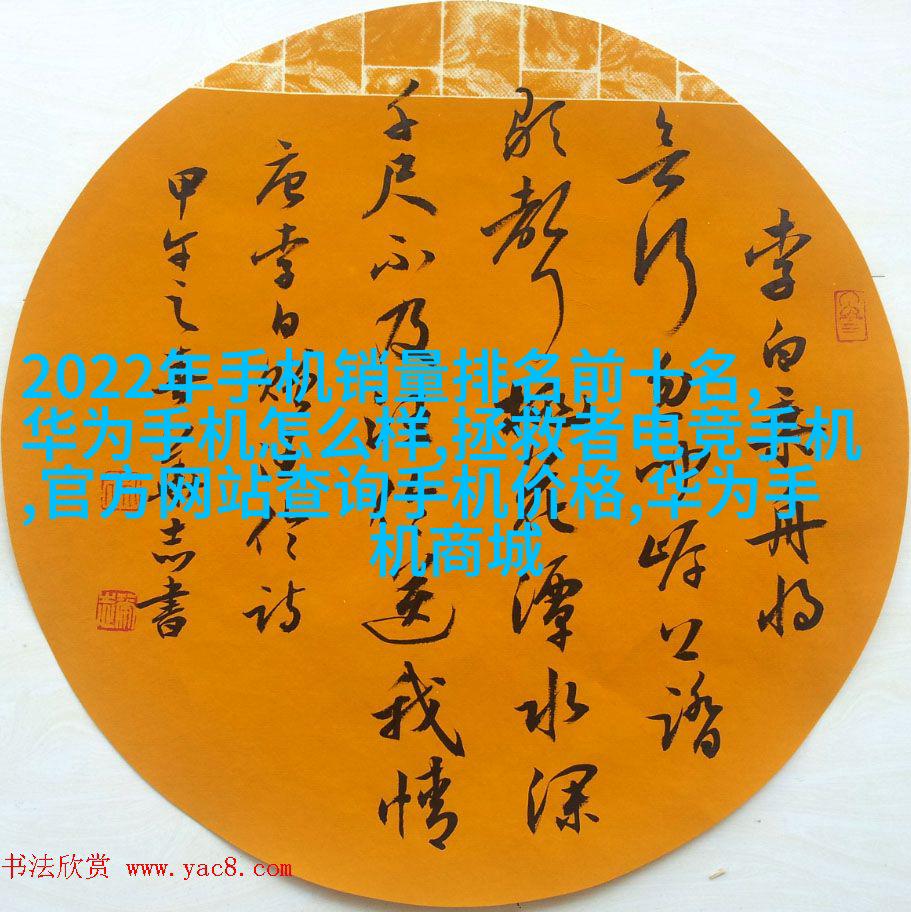 李白乘舟将
欲行忽闻岸上踏
歌聲桃花潭水深
千尺不及汪伦送我情
唐李白赠汪伦诗
甲午之春志书
2022年手机销量排名前十名,
华为手机怎么样,拯救者电竞手机
,官方网站查询手机价格,华为手
机商城
书法欣赏 www.yac8.com